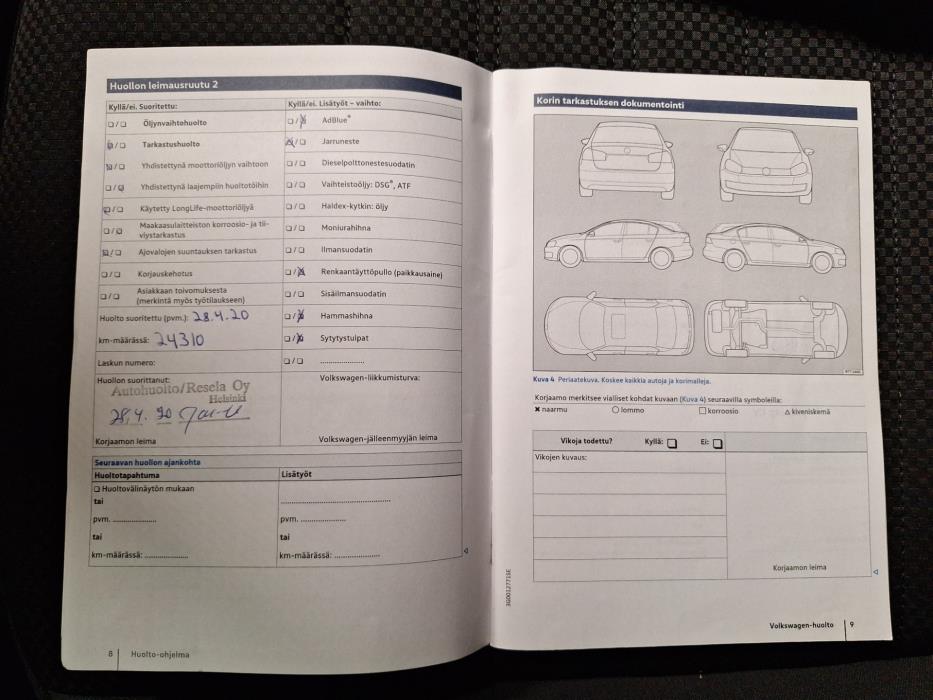 Huollon leimausruutu 2
Kyllä/ei. Suoritettu:
☐/☐ Öljynvaihtohuolto
☒/☐ Tarkastushuolto
☒/☐ Yhdistettynä moottoriöljyn vaihtoon
☐/☒ Yhdistettynä laajempiin huoltotöihin
☒/☐ Käytetty LongLife-moottoriöljyä
☐/☒ Maakaasulaitteiston korroosio- ja tii-
viystarkastus
☒/☐ Ajovalojen suuntauksen tarkastus
☐/☐ Korjauskehotus
☐/☐ Asiakkaan toivomuksesta
(merkintä myös työtilaukseen)
Huolto suoritettu (pvm.): 28.4.20
km-määrässä: 24310
Laskun numero:
Huollon suorittanut:
Autohuolto/Resela Oy
Helsinki
28,4. 20
Korjaamon leima
Kyllä/ei. Lisätyöt – vaihto:
☐/☒ AdBlue®
☒/☐ Jarruneste
☐/☐ Dieselpolttonestesuodatin
☐/☐ Vaihteistoöljy: DSG®, ATF
☐/☐ Haldex-kytkin: öljy
☐/☐ Moniurahihna
☐/☐ Ilmansuodatin
☐/☒ Renkaantäyttöpullo (paikkausaine)
☐/☐ Sisäilmansuodatin
☐/☒ Hammashihna
☐/☒ Sytytystulpat
☐/☐ ....................
Volkswagen-liikkumisturva:
Volkswagen-jälleenmyyjän leima
Seuraavan huollon ajankohta
Huoltotapahtuma
☐ Huoltovälinäytön mukaan
tai
pvm. ....................
tai
km-määrässä: ....................
Lisätyöt
........................................
pvm. ....................
tai
km-määrässä: ....................
8 Huolto-ohjelma
Korin tarkastuksen dokumentointi
Kuva 4 Periaatekuva. Koskee kaikkia autoja ja korimalleja.
Korjaamo merkitsee vialliset kohdat kuvaan (Kuva 4) seuraavilla symboleilla:
✖ naarmu ○ lommo ☐ korroosio △ kiveniskemä
Vikoja todettu? Kyllä: ☐ Ei: ☐
Vikojen kuvaus:
Korjaamon leima
3G0012771SE
Volkswagen-huolto 9